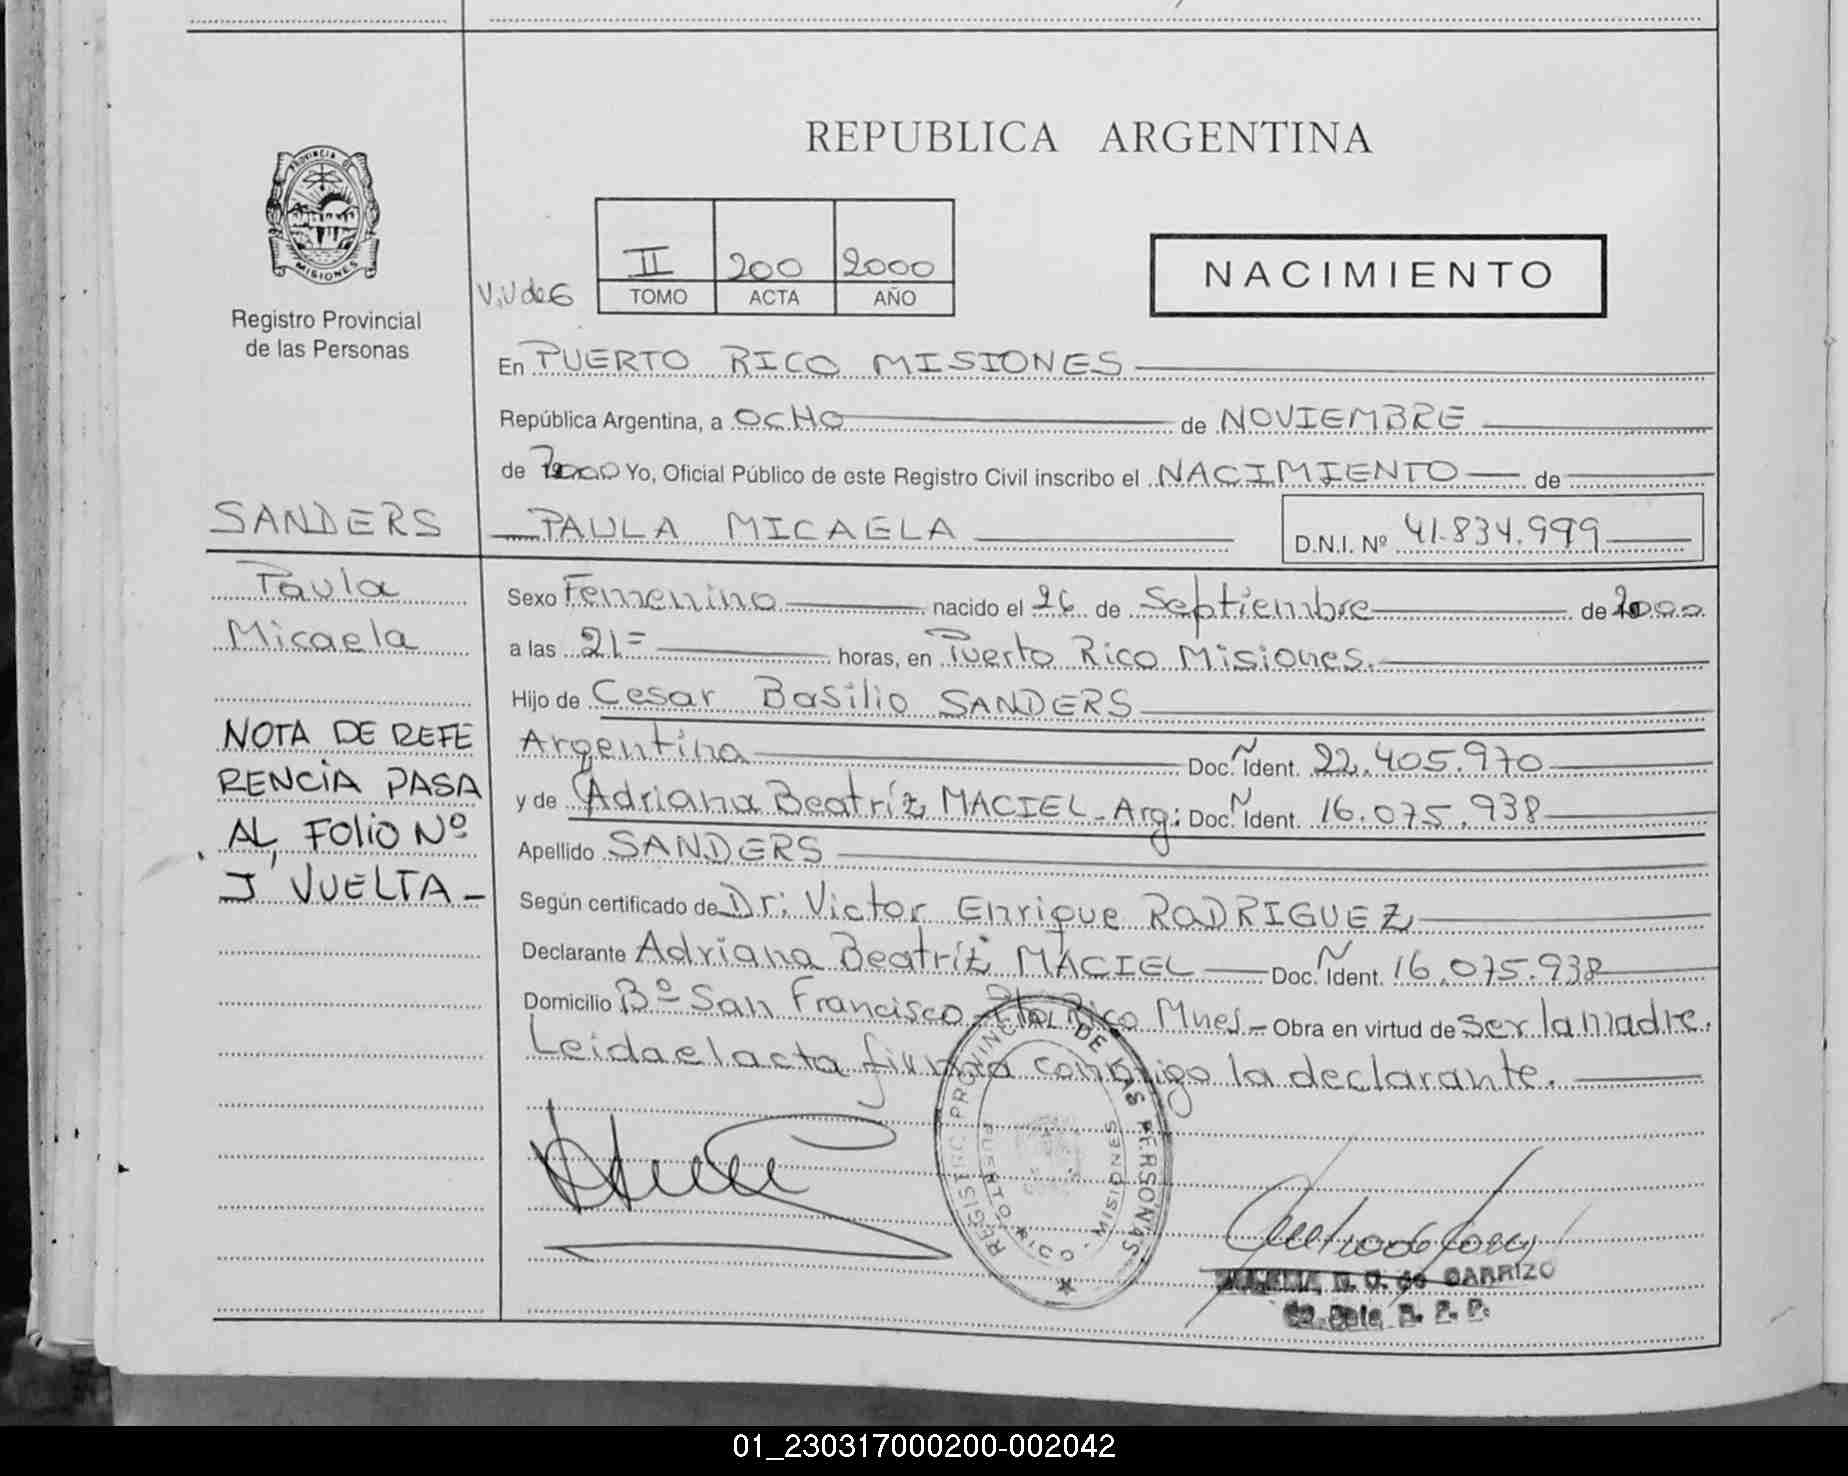 REPUBLICA ARGENTINA
PROVINCIA DE MISIONES
Registro Provincial
de las Personas
II 200 2000
TOMO ACTA AÑO
NACIMIENTO
En PUERTO RICO MISIONES
República Argentina, a OCHO de NOVIEMBRE
de 2000 Yo, Oficial Público de este Registro Civil inscribo el NACIMIENTO de
SANDERS PAULA MICAELA D.N.I. Nº 41.834.999
Paula
Micaela
NOTA DE REFE
RENCIA PASA
AL FOLIO Nº
VUELTA -
Sexo Femenino nacido el 26 de Septiembre de 2000
a las 21= horas, en Puerto Rico Misiones.
Hijo de Cesar Basilio SANDERS
Argentina Doc. Ñ Ident. 22.405.970
y de Adriana Beatríz MACIEL - Arg: Doc. Ñ Ident. 16.075.938
Apellido SANDERS
Según certificado de Dr: Victor Enrique RODRIGUEZ
Declarante Adriana Beatríz MACIEL Doc. Ñ Ident. 16.075.938
Domicilio Bº San Francisco - Pto Rico Mnes - Obra en virtud de ser la madre.
Leida el acta firma conmigo la declarante.
REGISTRO PROVINCIAL DE LAS PERSONAS
PUERTO RICO - MISIONES
de CARRIZO
01_230317000200-002042